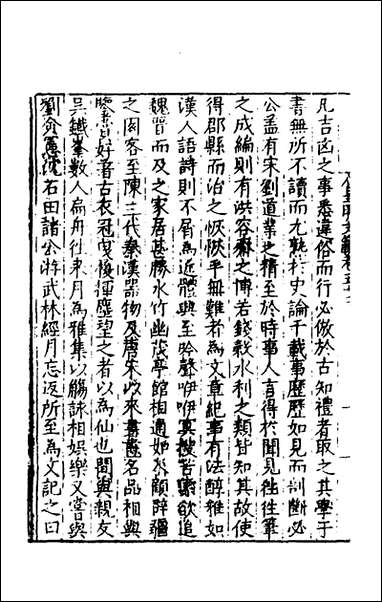 凡吉凶之事悉違俗而行必倣於古知禮者取之其學于
書無所不讀而尤熟於史論千載事歷歷如見而剖斷必
公盖有宋劉道業之精至於時事人言得於聞見徃徃筆
之成編則有洪容齋之博若錢穀水利之類皆知其故使
得郡縣而治之恢恢乎無難者為文章紀事有法醇雅如
漢人語詩則不屑為近體興至吟聲咿咿冥搜苦索欲追
魏晉而及之家居甚勝水竹幽茂亭館相通如入顧辟疆
之園客至陳三代秦漢器物及唐宋以來書畫名品相與
鑒賞好著古衣冠曳履揮麈望之者以為仙也間與親友
吳鐵峯數人扁舟徃來月為雅集以觴詠相娛樂又嘗與
劉僉憲沈石田諸公游武林經月忘返所至為文記之曰